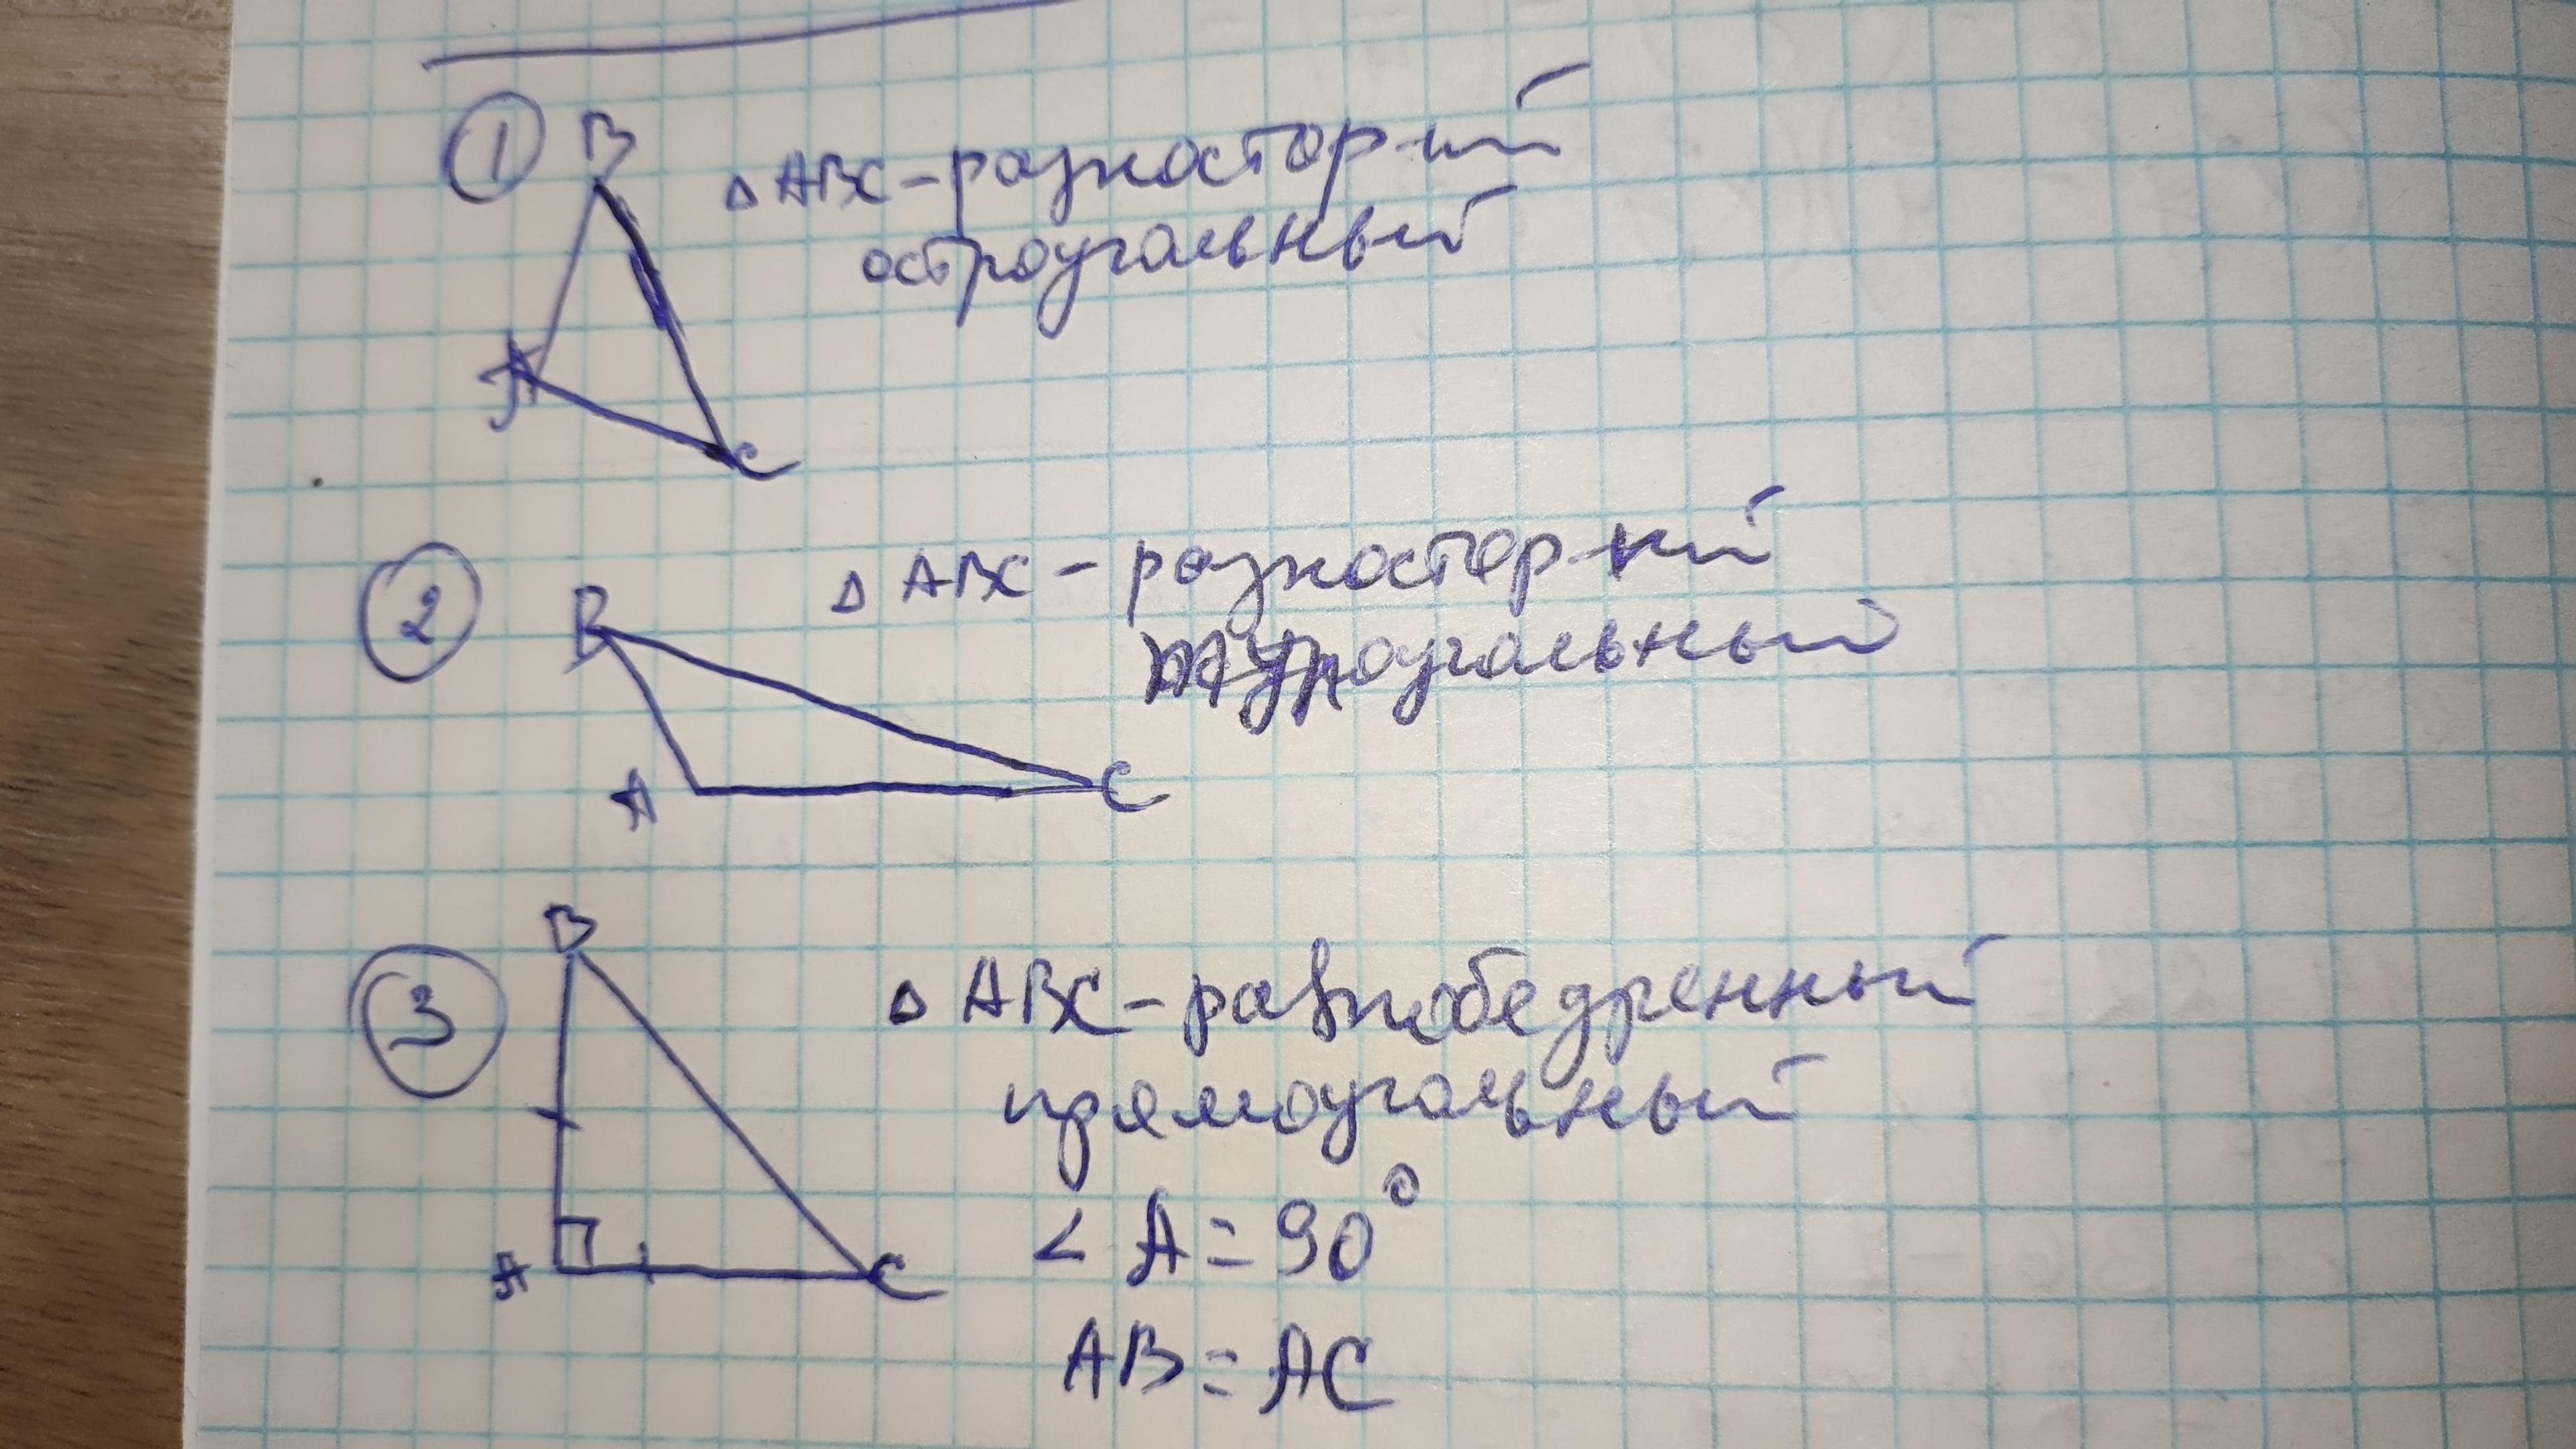 1
B
△ ABC - разностор-ий
остроугольный
A
C
2
△ ABC - разностор-ий
B
тупоугольный
A
C
3
B
△ ABC - равнобедренный
прямоугольный
< A = 90°
A
C
AB = AC